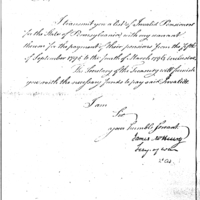 I transmit you a list of Invalid Pensioners
for the State of Pennsylvania with my warrant
thereon for the payment of their pensions from the fifth
of September 1795 to the fourth of March 1796 inclusive.
The Secretary of the Treasury will furnish
you with the necessary funds to pay said Invalids
I am
Sir
your humble servant
James McHenry
Secy. of war